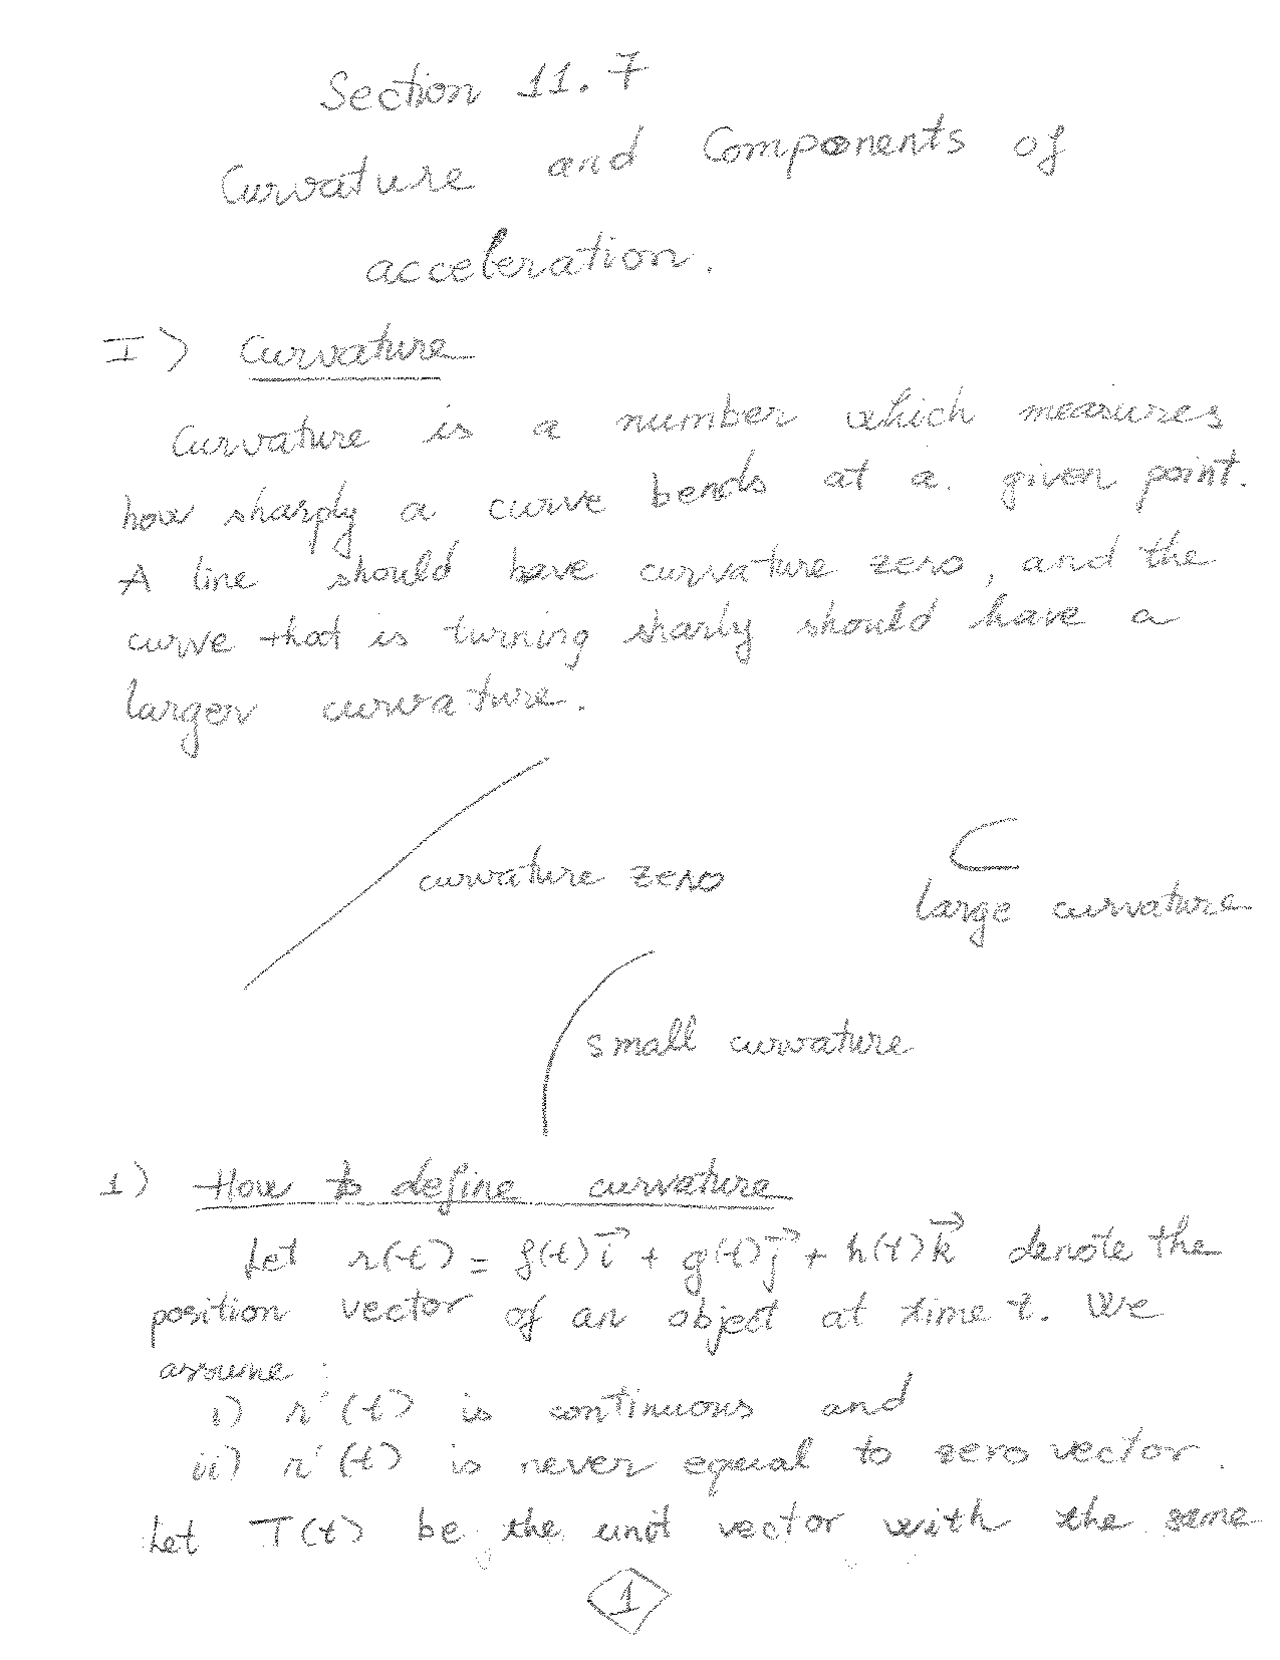 Section 11.7
Curvature and Components of
acceleration.
I) Curvature
Curvature is a number which measures
how sharply a curve bends at a given point.
A line should have curvature zero, and the
curve that is turning sharly should have a
larger curvature.
curvature zero
large curvature
small curvature
1) How to define curvature
Let r(t) = f(t)i⃗ + g(t)j⃗ + h(t)k⃗ denote the
position vector of an object at time t. We
assume :
i) r'(t) is continuous and
ii) r'(t) is never equal to zero vector.
Let T(t) be the unit vector with the same
1